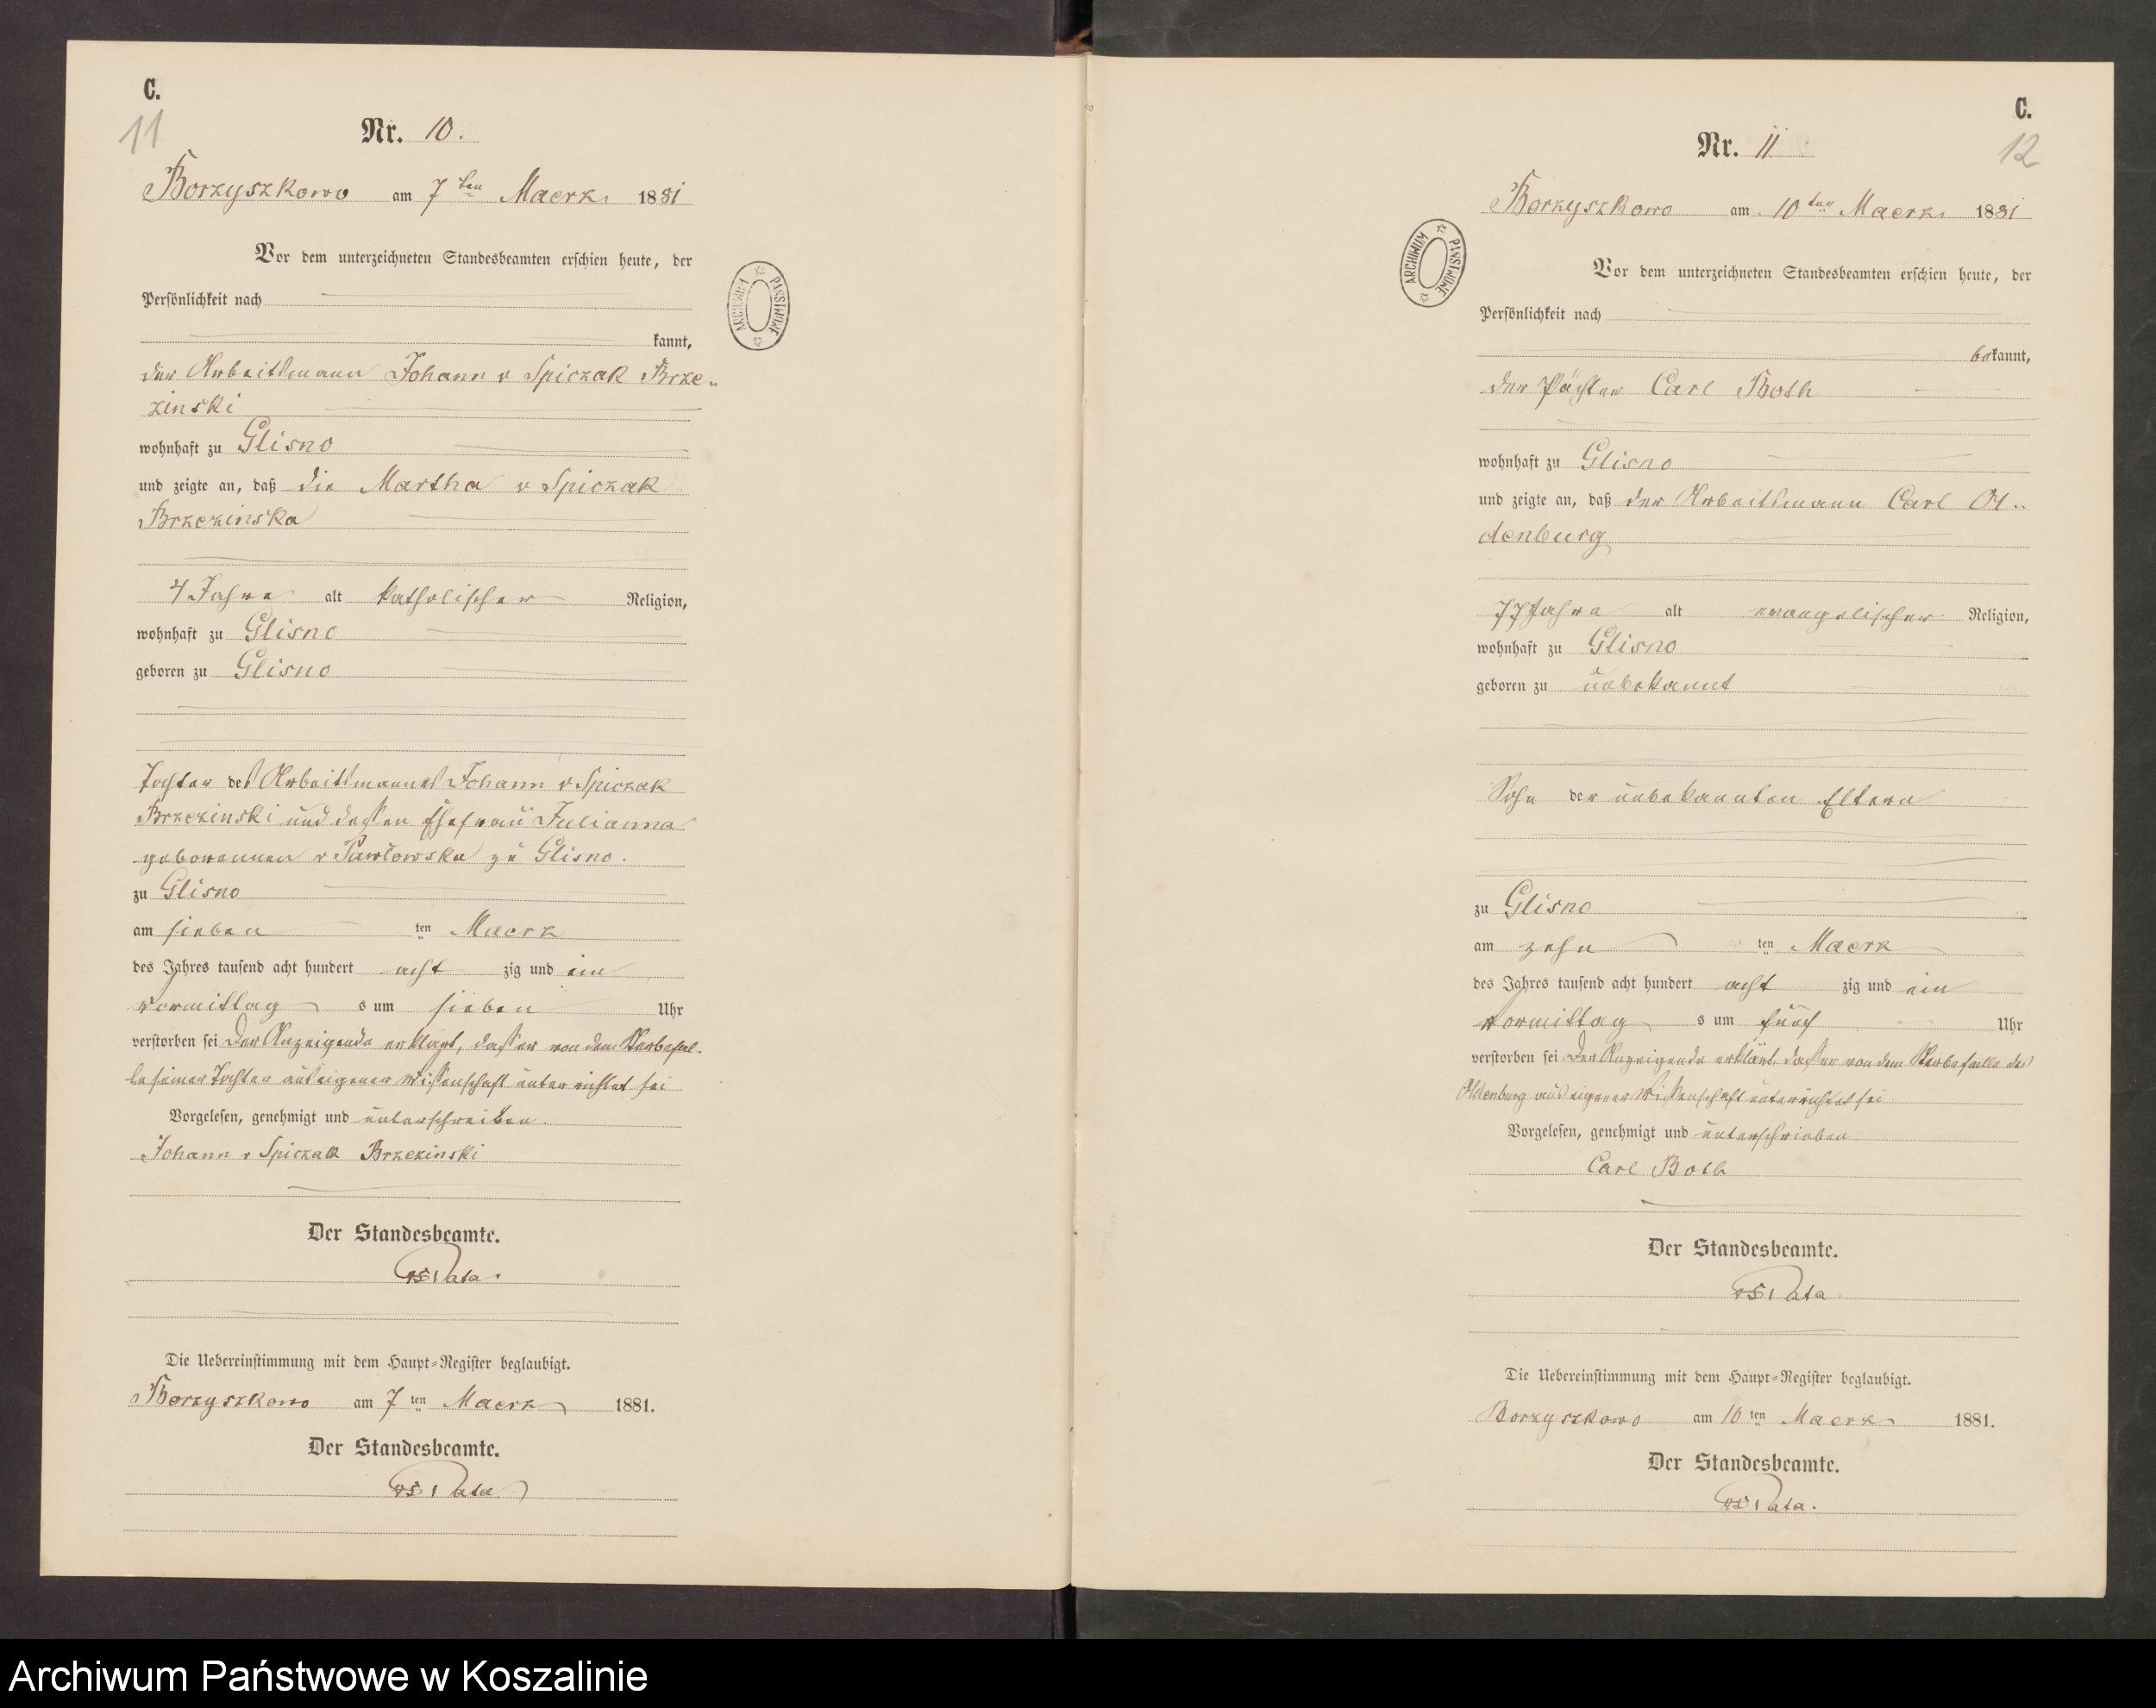 C.
11
Nr. 10.
Borzyszkowo am 7ten Maerz 1881
Vor dem unterzeichneten Standesbeamten erschien heute, der
Persönlichkeit nach
kannt,
der Arbeitsmann Johann v Spiczak Brze-
zinski
wohnhaft zu Glisno
und zeigte an, daß die Martha v Spiczak
Brzezinska
4 Jahre alt katholischer Religion,
wohnhaft zu Glisno
geboren zu Glisno
Tochter des Arbeitsmannes Johann v Spiczak
Brzezinski und dessen Ehefrau Julianna
geborennen v Pawlowska zu Glisno.
zu Glisno
am sieben ten Maerz
des Jahres tausend acht hundert acht zig und ein
vormittag s um sieben Uhr
verstorben sei Der Anzeigende erklärt, dass er von dem Sterbefal-
le seiner Tochter aus eigener Wissenschaft unterrichtet sei
Vorgelesen, genehmigt und unterschreiben.
Johann v Spiczak Brzezinski
Der Standesbeamte.
Pata.
Die Uebereinstimmung mit dem Haupt-Register beglaubigt.
Borzyszkowo am 7 ten Maerz 1881.
Der Standesbeamte.
Pata
ARCHIWUM PAŃSTWOWE
C.
12
Nr. 11
Borzyszkowo am 10ten Maerz 1881
Vor dem unterzeichneten Standesbeamten erschien heute, der
Persönlichkeit nach
bekannt,
der Pächter Carl Both
wohnhaft zu Glisno
und zeigte an, daß der Arbeitsmann Carl Ol-
denburg
77 Jahre alt evangelischer Religion,
wohnhaft zu Glisno
geboren zu unbekannt
Sohn der unbekannten Eltern
zu Glisno
am zehn ten Maerz
des Jahres tausend acht hundert acht zig und ein
vormittag s um fünf Uhr
verstorben sei. Der Anzeigende erklärt, dass er von dem Sterbefalle des
Oldenburg aus eigener Wissenschaft unterrichtet sei
Vorgelesen, genehmigt und unterschrieben
Carl Both
Der Standesbeamte.
Pata.
Die Uebereinstimmung mit dem Haupt-Register beglaubigt.
Borzyszkowo am 10 ten Maerz 1881.
Der Standesbeamte.
Pata.
ARCHIWUM PAŃSTWOWE
Archiwum Państwowe w Koszalinie